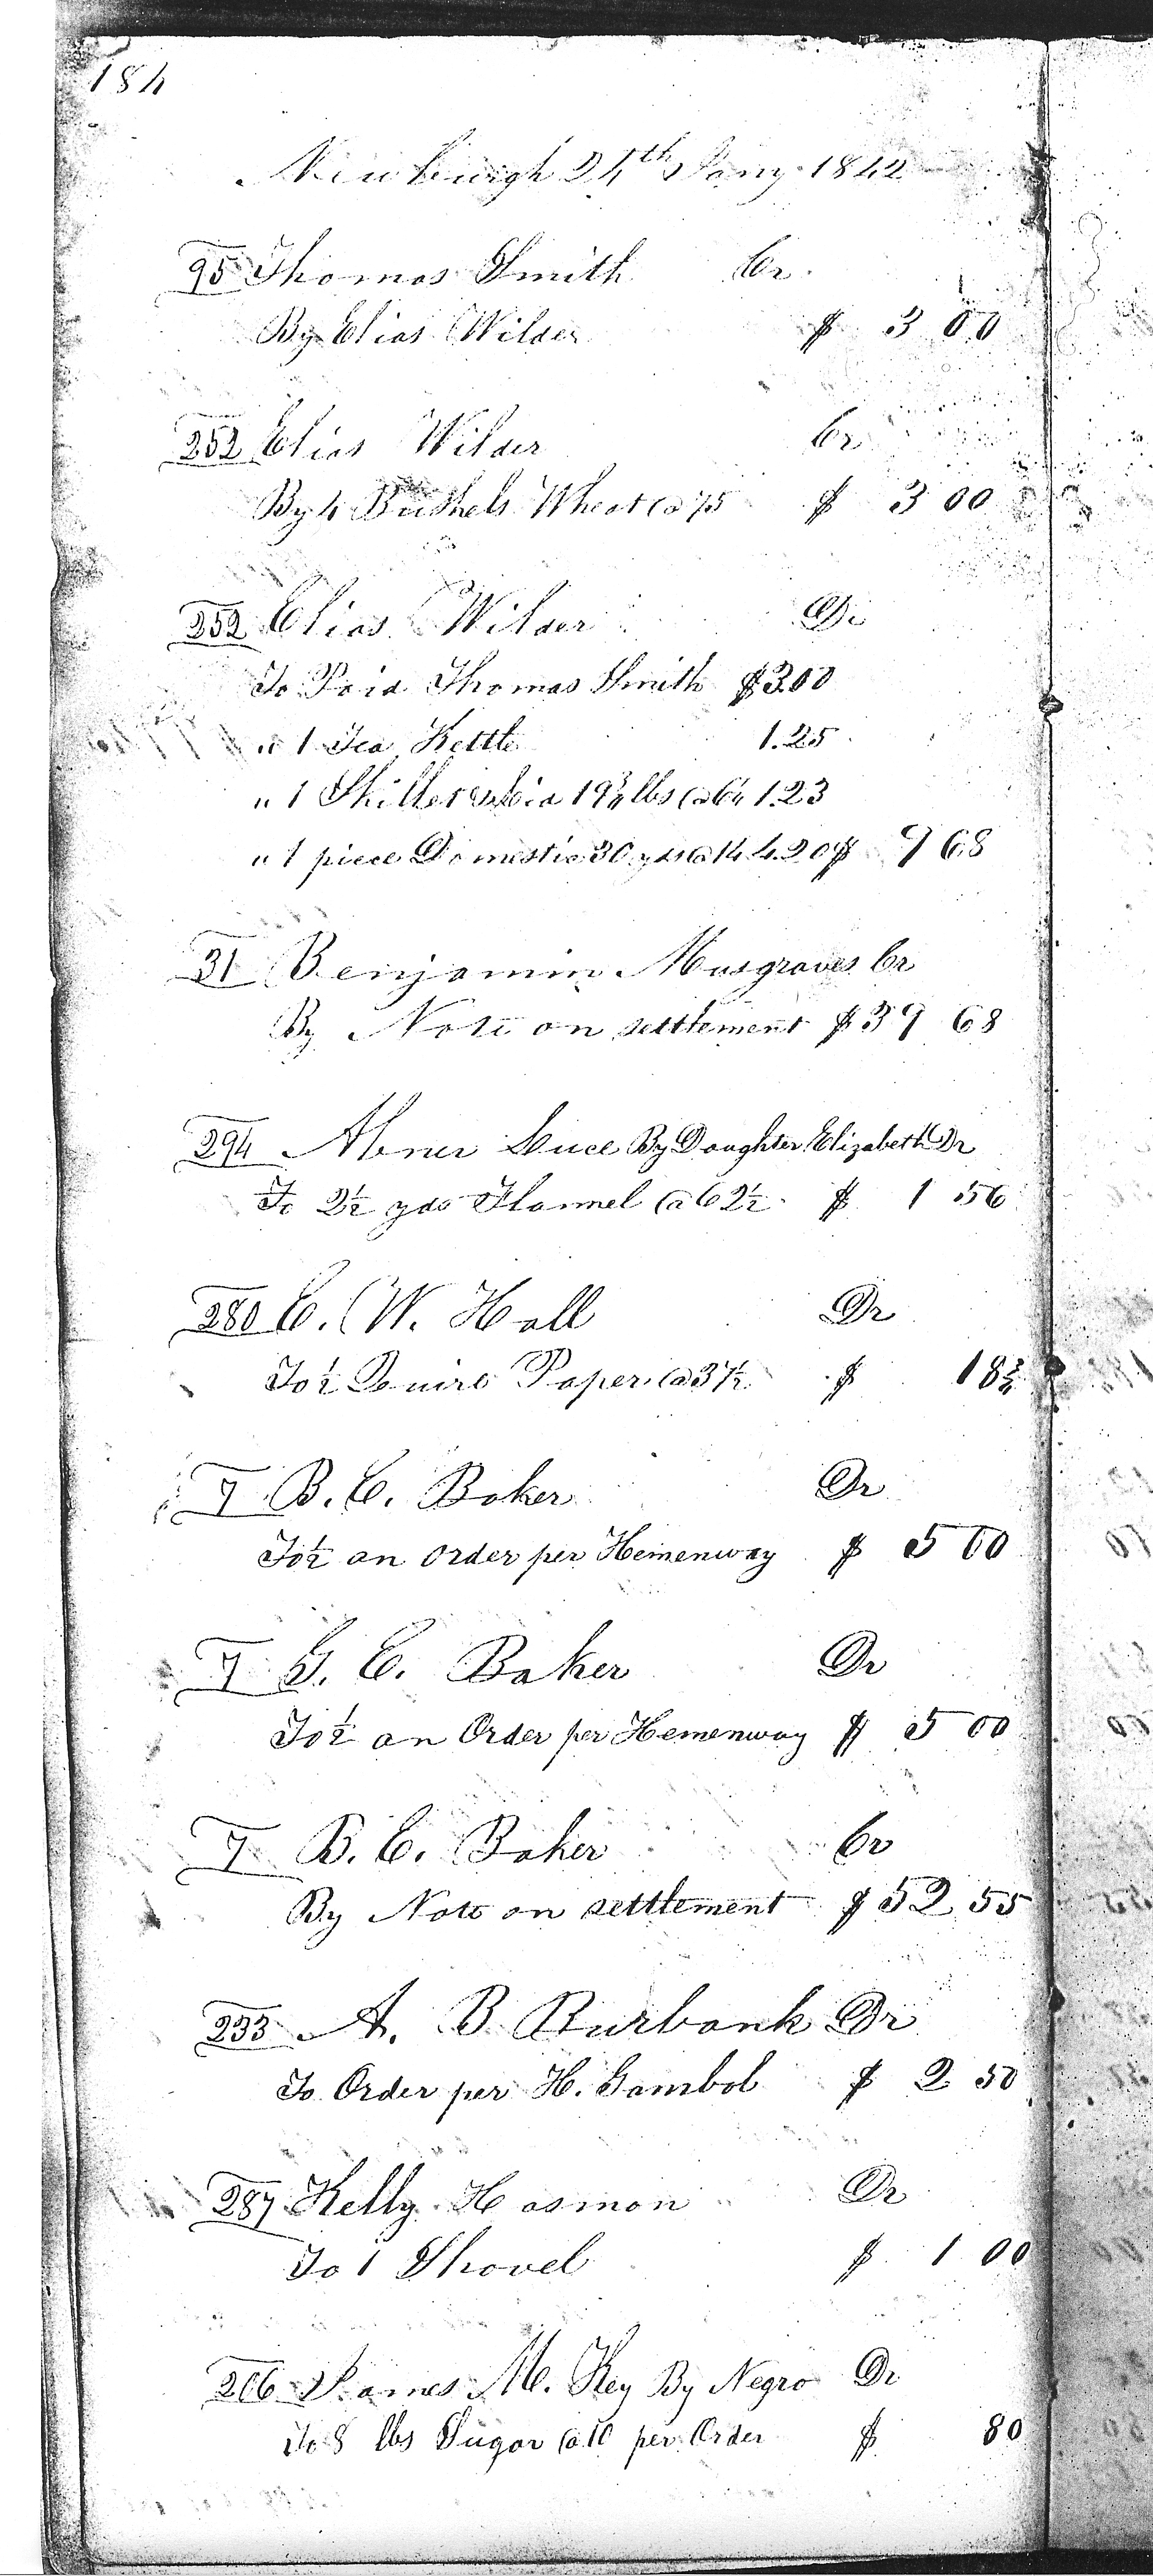 184
Newburgh 24th Jany. 1842
95 Thomas Smith Cr.
By Elias Wilder $ 3 00
252 Elias Wilder Cr
By 4 Bushels Wheat @ 75 $ 3 00
252 Elias Wilder Dr
To Paid Thomas Smith $3.00
" 1 Tea Kettle 1.25
" 1 Skillet & Lid 19¾ lbs @ 6¼ 1.23
" 1 piece Domestic 30 yds @ 14 4.20 $ 9 68
31 Benjamin Musgraves Cr
By Note on settlement $39 68
294 Abner Luce By Daughter Elizabeth Dr
To 2½ yds Flannel @ 62½ $ 1 56
280 E. W. Hall Dr
To ½ Quire Paper @ 37½ $ 18¾
7 B. C. Baker Dr
To ½ an Order per Hemenway $ 5 00
7 G. C. Baker Dr
To ½ an Order per Hemenway $ 5 00
7 B. C. Baker Cr
By Note on settlement $52 55
233 A. B Burbank Dr
To Order per H. Gambol $ 2 50
287 Kelly Hasmon Dr
To 1 Shovel $ 1 00
206 James M. Key By Negro Dr
To 8 lbs Sugar @ 10 per Order $ 80